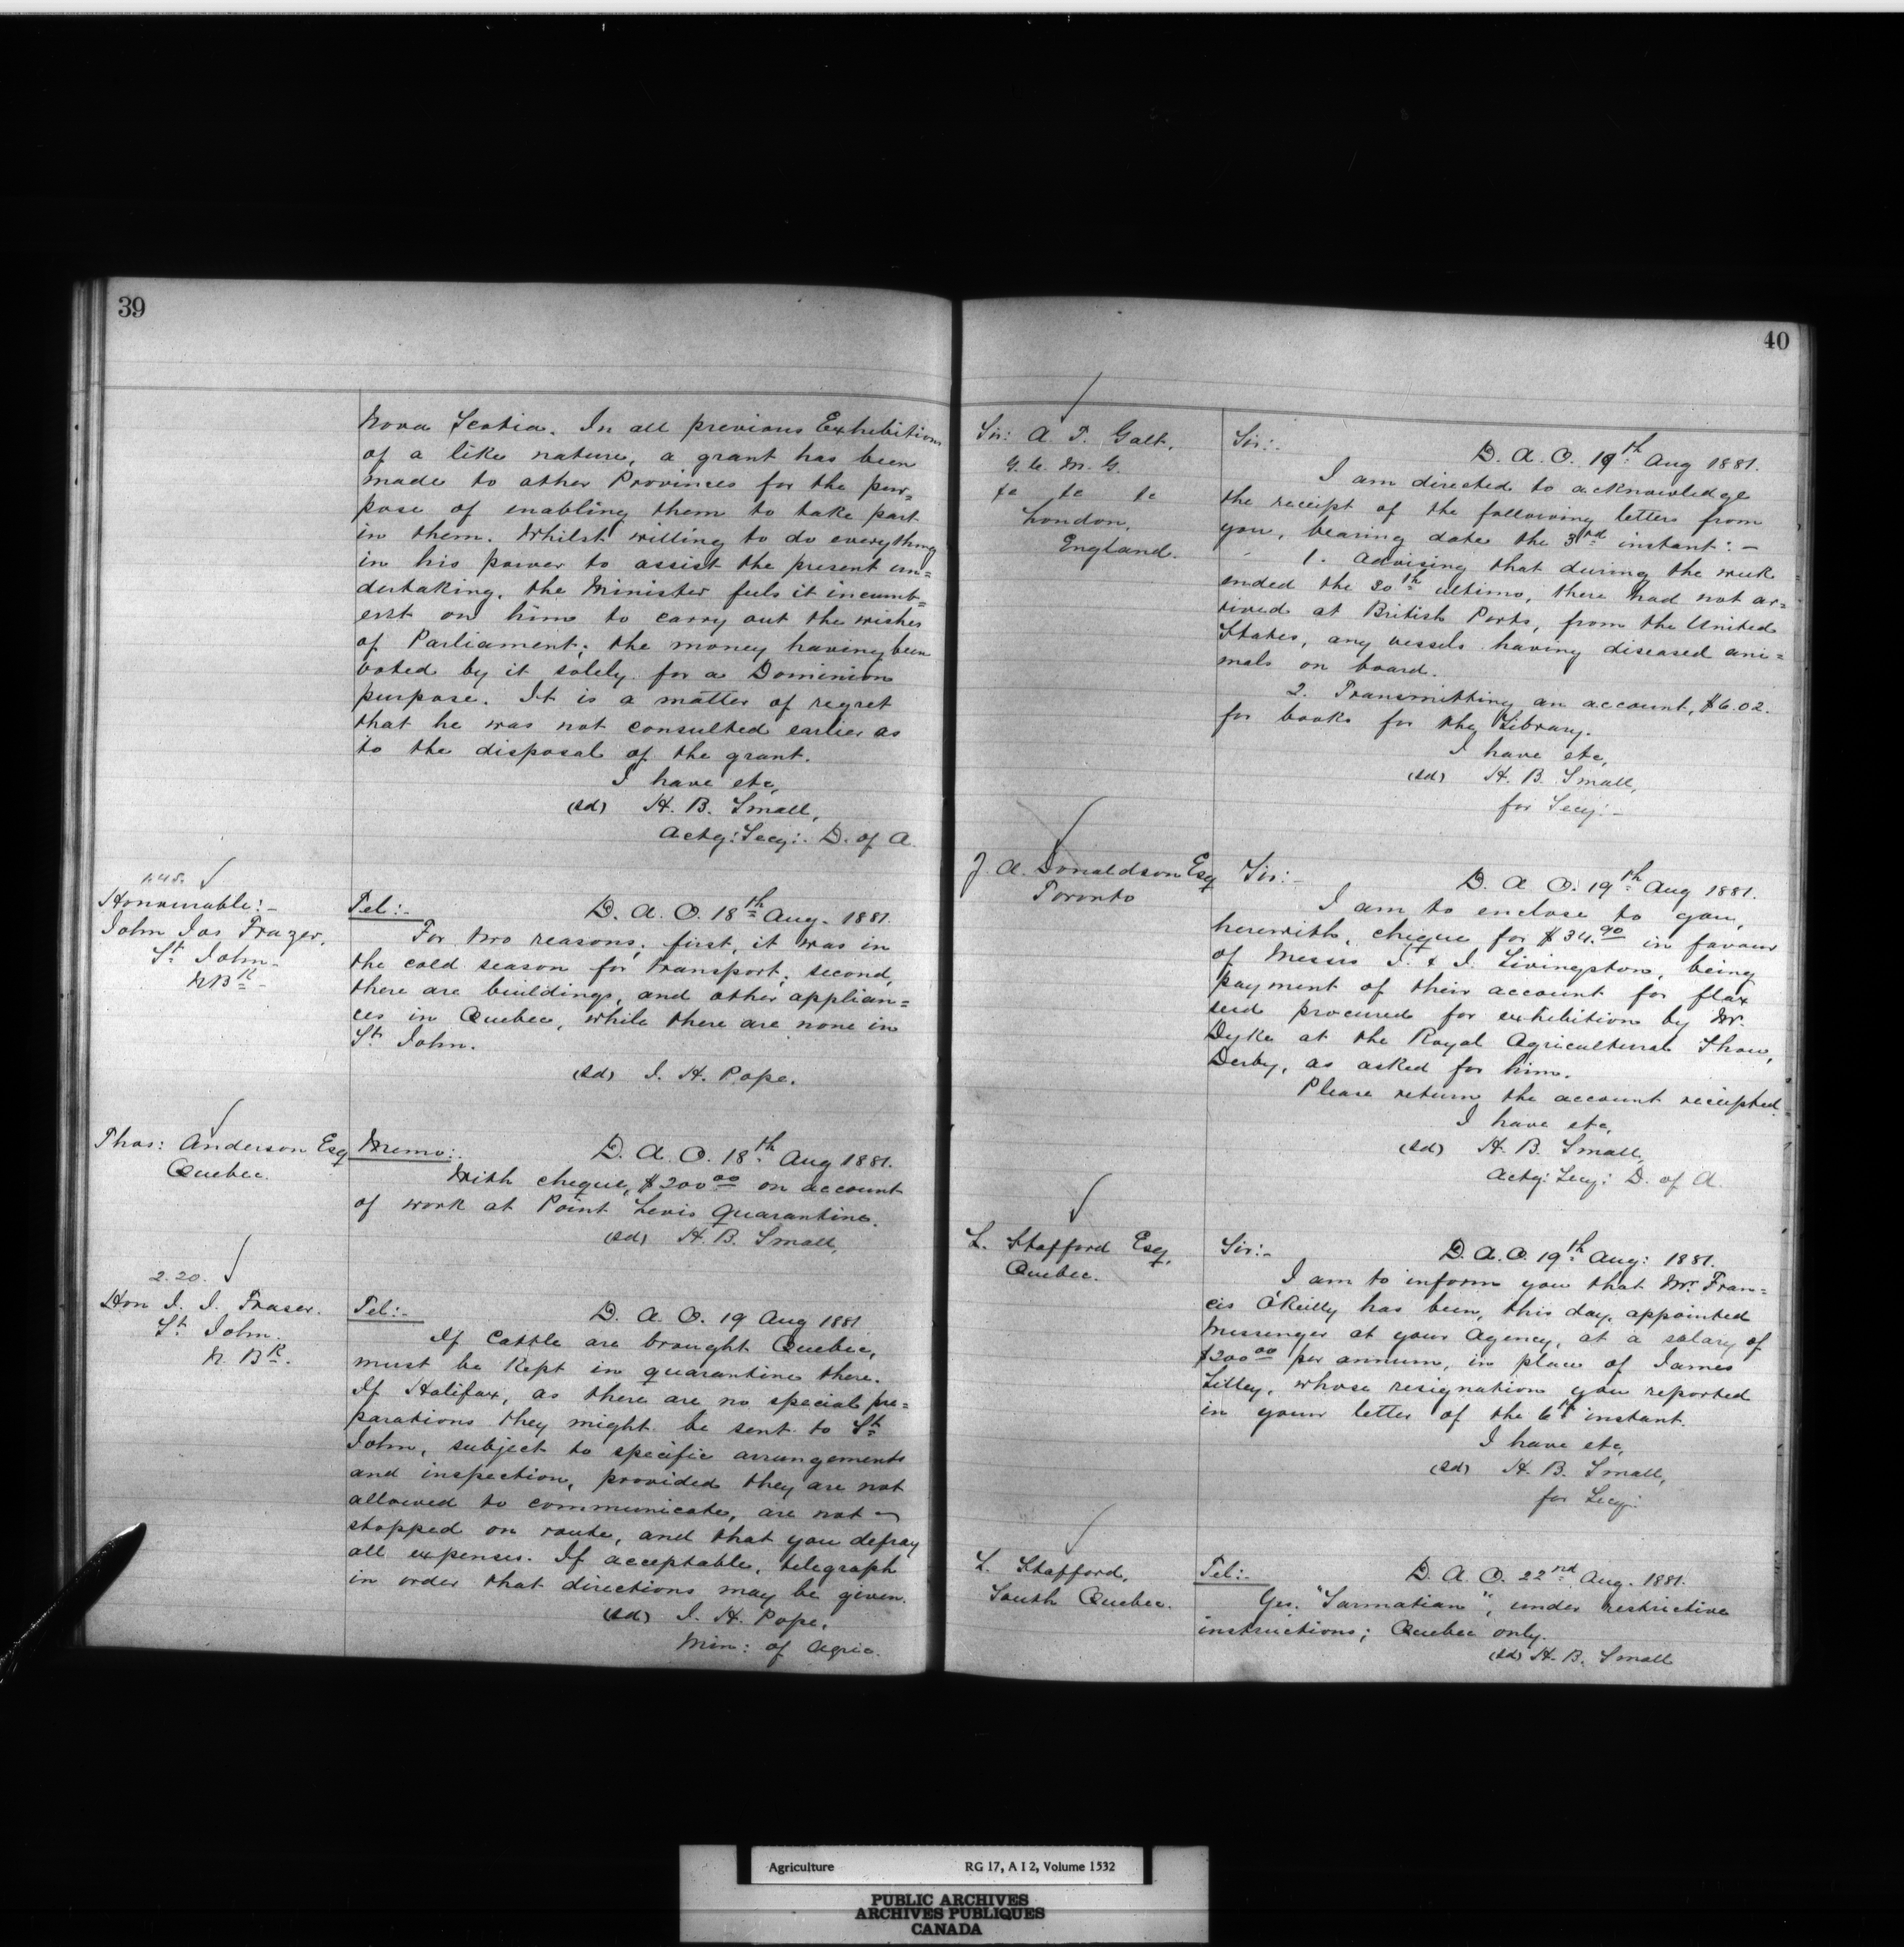 39
Nova Scotia. In all previous Exhibitions
of a like nature, a grant has been
made to other Provinces for the pur=
pose of enabling them to take part
in them. Whilst willing to do everything
in his power to assist the present un=
dertaking, the Minister feels it incumb=
ent on him to carry out the wishes
of Parliament; the money having been
voted by it solely for a Dominion
purpose. It is a matter of regret
that he was not consulted earlier as
to the disposal of the grant.
I have etc,
(sd) H. B. Small,
Actg: Secy: D. of A.
1.45.
Honourable:-
John Jas Frazer,
St John
N BK
Tel:- D. A. O. 18th Aug. 1881.
For two reasons; first, it was in
the cold season for transport; second,
there are buildings, and other applian=
ces in Quebec, while there are none in
St John.
(sd) J. H. Pope.
Thos: Anderson Esq
Quebec.
Memo:- D. A. O. 18th Aug 1881.
With cheque, $200 00 on account
of work at Point Levis Quarantine.
(sd) H. B. Small,
2.20.
Hon J. J. Fraser.
St John.
N. BK.
Tel:- D. A. O. 19 Aug 1881
If Cattle are brought Quebec,
must be kept in quarantine there.
If Halifax, as there are no special pre=
parations they might be sent to St
John, subject to specific arrangements
and inspection, provided they are not
allowed to communicate, are not
stopped on route, and that you defray
all expenses. If acceptable, telegraph
in order that directions may be given.
(sd) J. H. Pope,
Min: of Agric.
40
Sir: A. T. Galt,
G. C. M. G.
&c &c &c
London,
England.
Sir:- D. A. O. 19th Aug 1881.
I am directed to acknowledge
the receipt of the following letters from
you, bearing date the 3rd instant:-
1. Advising that during the week
ended the 30th ultimo, there had not ar=
rived at British Ports, from the United
States, any vessels having diseased ani=
mals on board.
2. Transmitting an account, $6.02.
for books for the Library.
I have etc,
(sd) H. B. Small,
for Secy:-
J. A. Donaldson Esq
Toronto
Sir:- D. A. O. 19th Aug 1881.
I am to enclose to you,
herewith, cheque for $34.90 in favour
of Messrs J. & J. Livingston, being
payment of their account for flax
seed procured for exhibition by Mr.
Dyke at the Royal Agricultural Show,
Derby, as asked for him.
Please return the account receipted.
I have etc,
(sd) H. B. Small,
Actg: Secy: D. of A.
L. Stafford Esq,
Quebec.
Sir:- D. A. O. 19th Aug: 1881.
I am to inform you that Mr. Fran=
cis O'Reilly has been, this day, appointed
Messenger at your Agency, at a salary of
$200 00 per annum, in place of James
Lilley, whose resignation you reported
in your letter of the 6th instant.
I have etc,
(sd) H. B. Small,
for Secy:
L. Stafford,
South Quebec.
Tel:- D. A. O. 22nd Aug. 1881.
Yes. "Sarmatian", under restrictive
instructions; Quebec only.
(sd) H. B. Small
Agriculture RG 17, A I 2, Volume 1532
PUBLIC ARCHIVES
ARCHIVES PUBLIQUES
CANADA